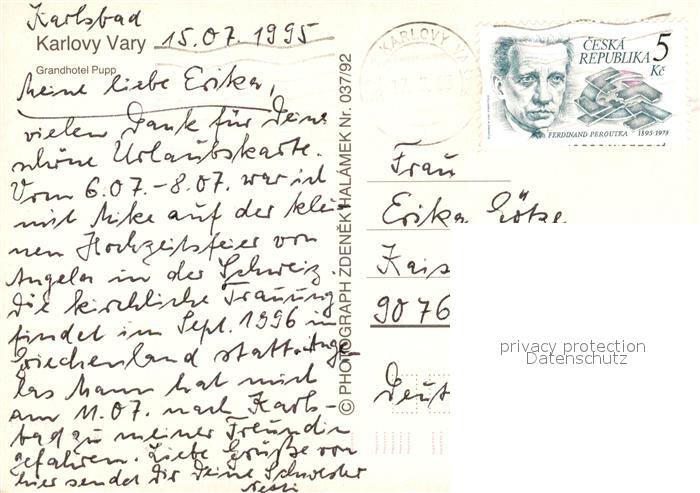 Karlsbad
Karlovy Vary 15.07.1995
Grandhotel Pupp
Meine liebe Erika,
vielen Dank für Deine
schöne Urlaubskarte.
Vom 6.07.-8.07. war ich
mit Mike auf der klei-
nen Hochzeitsfeier von
Angela in der Schweiz.
Die kirchliche Trauung
findet im Sept. 1996 in
Griechenland statt. Ange-
las Mann hat mich
am 11.07. nach Karls-
bad zu meiner Freundin
gefahren. Liebe Grüße von
hier sendet Dir Deine Schwester
© PHOTOGRAPH ZDENĚK HALÁMEK Nr. 037/92
KARLOVY VA
ČESKÁ
REPUBLIKA 5
Kč
FERDINAND PEROUTKA 1895-1978
Frau
Erika Götze
Kais
9076
Deut
privacy protection
Datenschutz